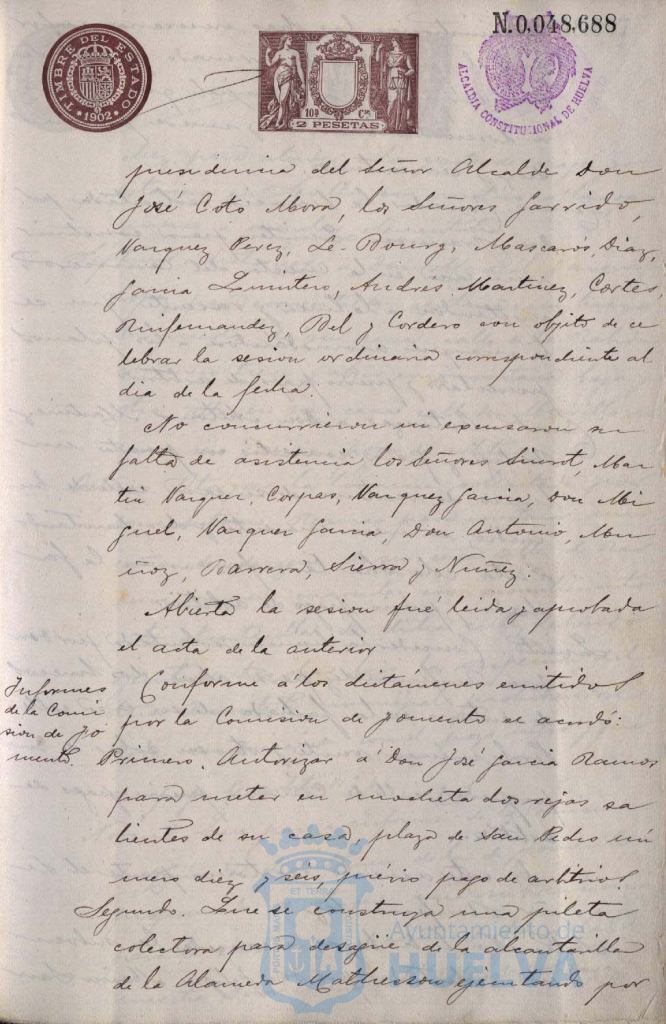 N.0,048,688
TIMBRE DEL ESTADO
1902
10ª Cse
2 PESETAS
ALCALDIA CONSTITUCIONAL DE HUELVA
presidencia del Señor Alcalde Don
José Coto Mora, los Señores Garrido,
Vazquez Perez, Le-Bourg, Mascarós, Diaz,
Garcia Quintero, Andres Martinez, Cortes,
Rinfernandez, Bel y Cordero con objeto de ce
lebrar la sesion ordinaria correspondiente al
dia de la fecha.
No concurrieron ni excusaron su
falta de asistencia los Señores Siurot, Mar
tin Vazquez, Corpas, Vazquez Garcia, Don Mi
guel, Vazquez Garcia, Don Antonio, Mu
ñoz, Barrera, Sierra y Nuñez.
Abierta la sesion fué leida y aprobada
el acta de la anterior
Informes
de la Comi
sion de Fo
mento.
Conforme á los dictámenes emitidos
por la Comision de Fomento se acordó:
Primero. Autorizar á Don José Garcia Ramos
para meter en mocheta dos rejas sa
lientes de su casa, plaza de San Pedro nú
mero diez y seis, prévio pago de arbitrios.
Segundo. Que se construya una pileta
colectora para desagüe de la alcantarilla
de la Alameda Mathesson ejecutando por
Ayuntamiento de
HUELVA